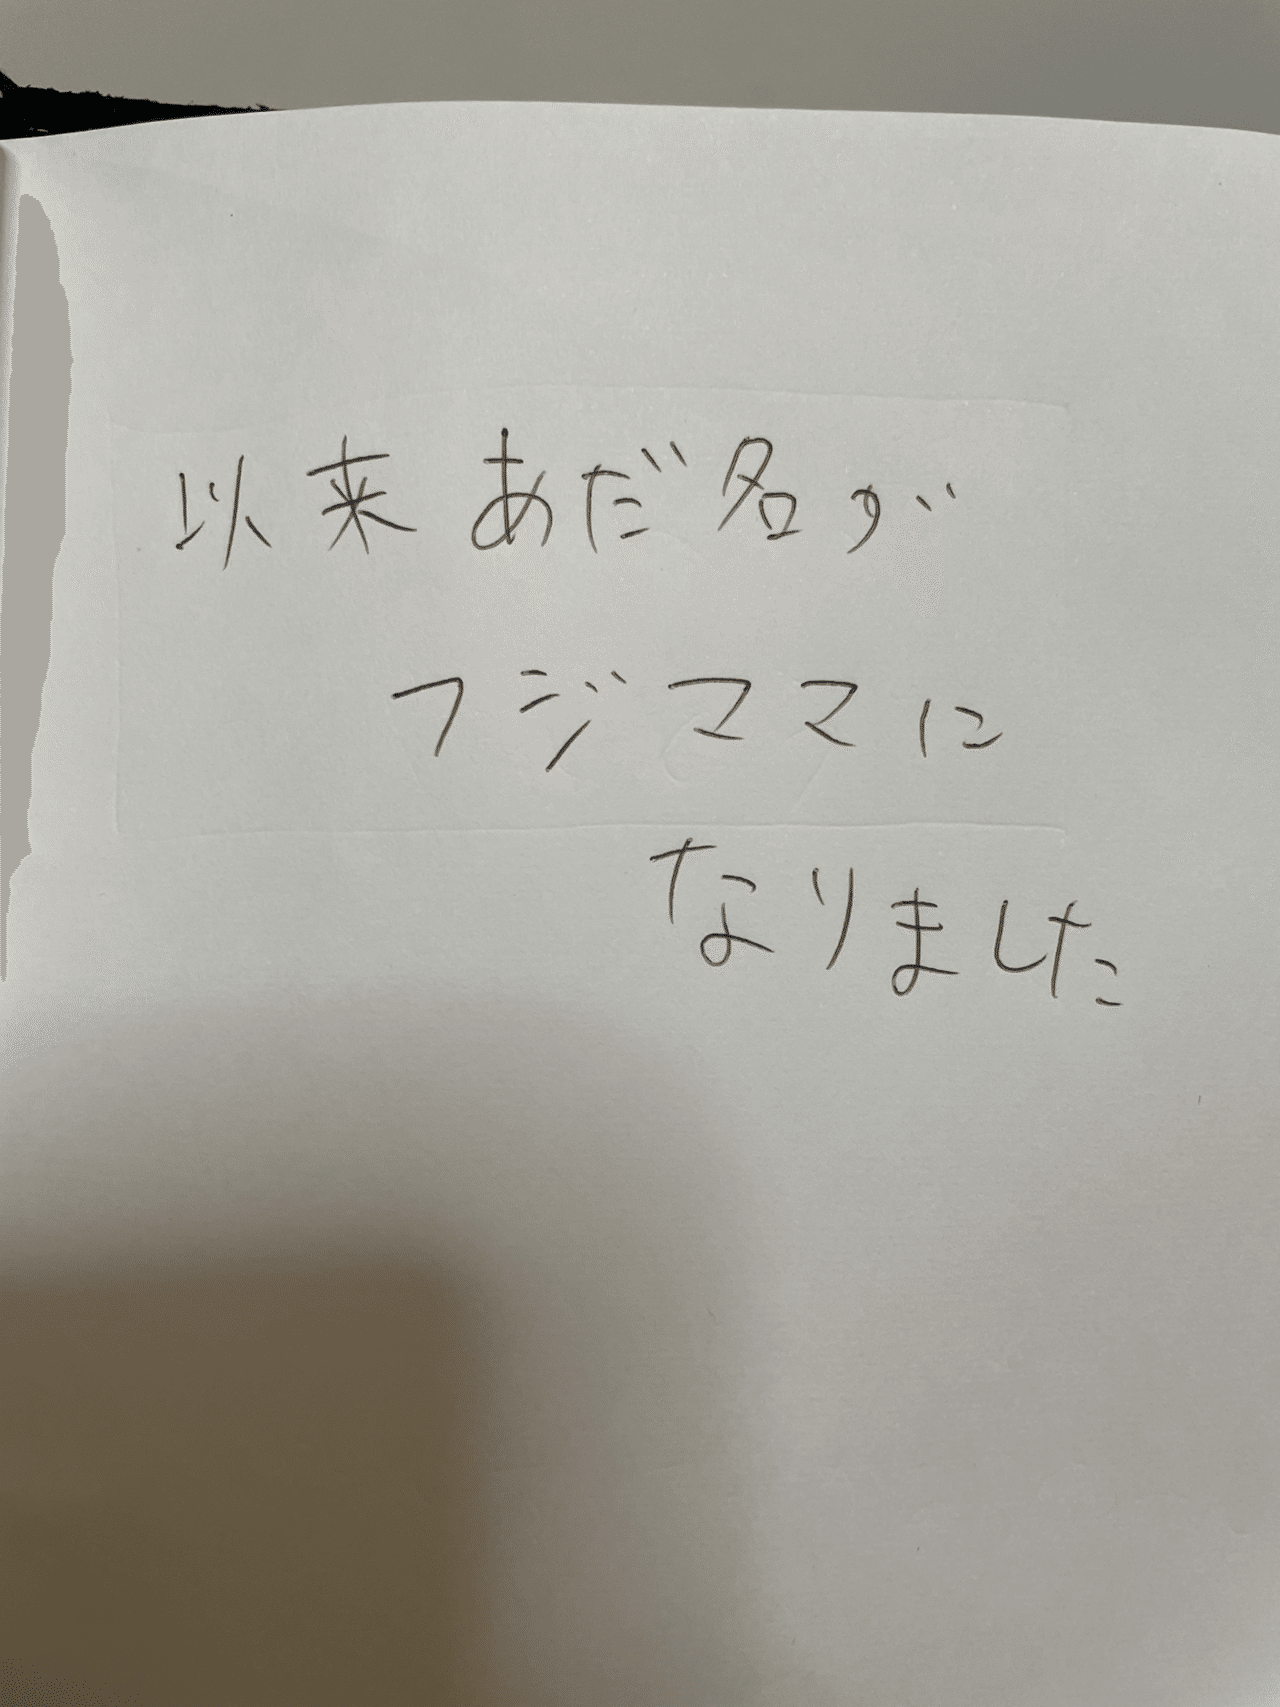 以来あだ名が
フジママに
なりました